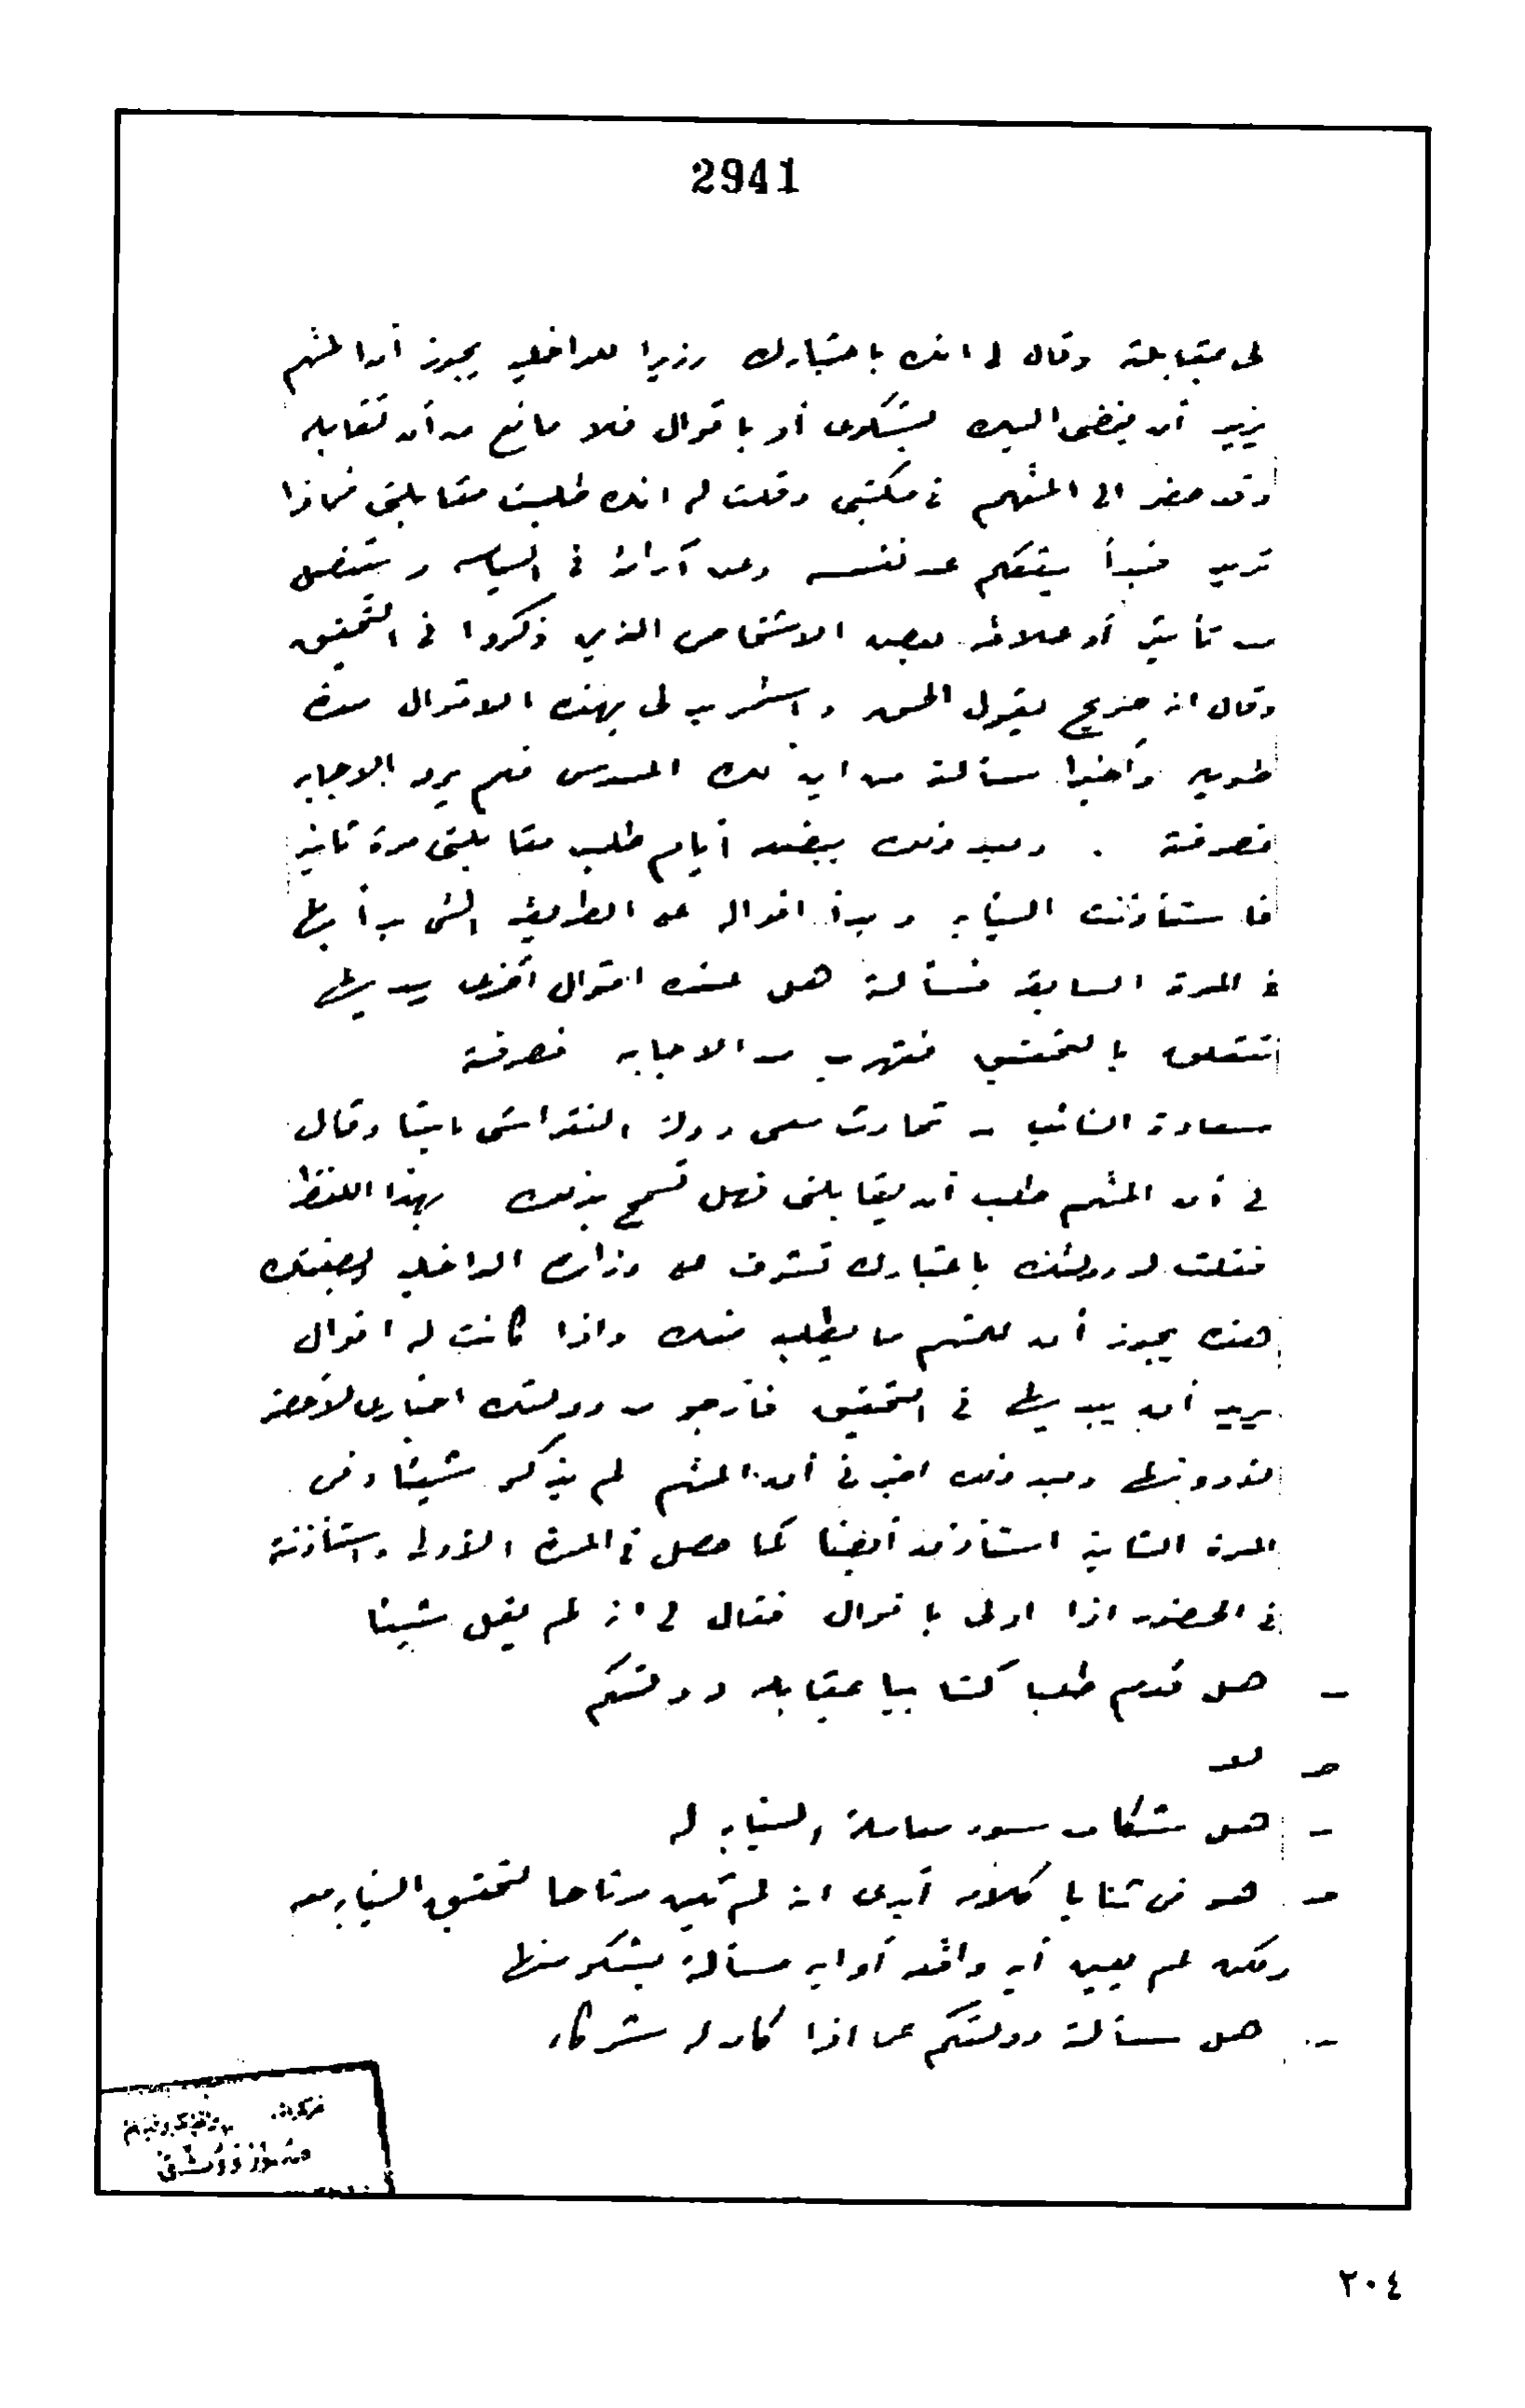 2941
لى بمقابلته وقال لى انك باعتبارك وزيرا للداخلية يجوز أن المتهم
يريد أن يفضى اليك بشكوى أو باقوال فلا مانع من أن تقابله
وقد حضر الى المتهم فى مكتبى وقلت له انك طلبت مقابلتى فماذا
تريد فبدأ يتكلم عن نفسه وعن آرائه فى السياسه و يتنصل
من تأثير أو علاقه بعض الاشخاص الذين ذكروا فى التحقيق
وقال انه خريج بقول الحق واسترسل لى بهذه الاقوال مدة
طويله وأخيرا سألته من اين لك المسدس فلم يرد الاجابه
فصرفته . وبعد ذلك ببضعه أيام طلب مقابلتى مرة ثانيه
فاستأذنت النيابه وبدأ اقواله على الطريقه التى بدأ بها
فى المرة السابقه فسألته هل عنده اقوال أخرى يبديها
تتعلق بالتحقيق فتهرب من الاجابه فصرفته
سعادة النائب - تحادث معى دولة النقراشى باشا وقال
لى أن المتهم طلب أن يقابلنى فهل تسمح بذلك بهذا اللفظ
فقلت له دولتك باعتبارك تشرف على وزارة الداخليه وبصفتك
هذه يجوز أن للمتهم ما يطلبه منك واذا كانت له اقوال
يريد أن يبديها فى التحقيق فأرجو من دولتك اخبارى لأحضر
لتدوينها وبعد ذلك اخبرنى أن المتهم لم يذكر شيئا وفى
المرة الثانية استأذنه أيضا كما حصل فى المرة الأولى واستأذنته
فى الحضور اذا ادلى باقوال فقال لى انه لم يقل شيئا
- هل قدم طلبا كتابيا بمقابلة دولتكم
ج لا
- هل شكا من سوء معاملة النيابه له
ج هو فى ثنايا كلامه أبدى انه لم يكن مرتاحا لتحقيق النيابه معه
ولكن لم يعين أيه واقعه أو ايه مسألة يشكو منها
- هل سألته دولتكم عما اذا كان له شركاء
٢٠٤